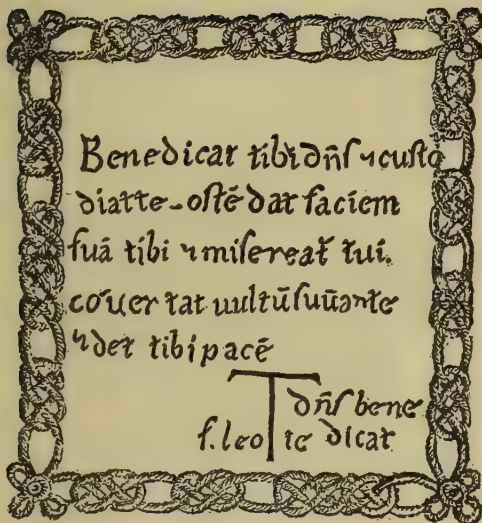 Benedicat tibi dñs ⁊ custo
diat te - ostēdat faciem
suā tibi ⁊ misereat̄ tui.
cōuertat uultū suū ad te
⁊ det tibi pacē
dñs bene
f. leo T te dicat